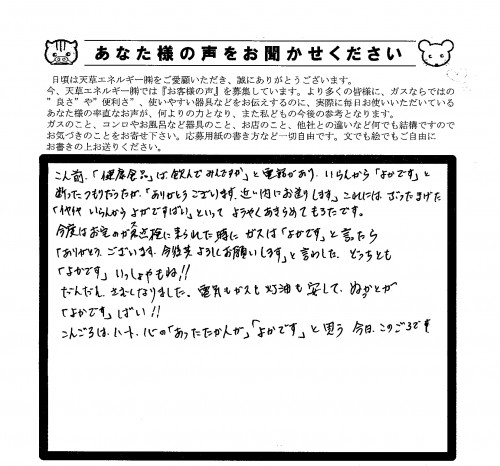 あなた様の声をお聞かせください
日頃は天草エネルギー㈱をご愛顧いただき、誠にありがとうございます。
今、天草エネルギー㈱では『お客様の声』を募集しています。より多くの皆様に、ガスならではの
”良さ”や”便利さ”、使いやすい器具などをお伝えするのに、実際に毎日お使いいただいている
あなた様の率直なお声が、何よりの力となり、また私どもの今後の参考となります。
ガスのこと、コンロやお風呂など器具のこと、お店のこと、他社との違いなど何でも結構ですので
お気づきのことをお寄せ下さい。応募用紙の書き方など一切自由です。文でも絵でもご自由に
お書きの上お送りください。
こん前、「健康食品」は飲んでみんですか」と電話があり、いらんから「よかです」と
断ったつもりだったが、「ありがとうございます、近い内にお送りします」これには たまげた
「いやいや いらんから よかですばい」といって ようやくあきらめてもろたです。
今度はお宅のガス点検に来られた時に ガスは「よかです」と言ったら
「ありがとうございます、今後共よろしくお願いします」と言わした、どっちも
「よかです」いっしょやもね!!
だんだん、さむしなりました、電気もガスも灯油も 安して、ぬっかとが
「よかです」ばい!!
こんごろは、ハート、心の「あったたか人が」「よかです」と思う 今日、このごろです